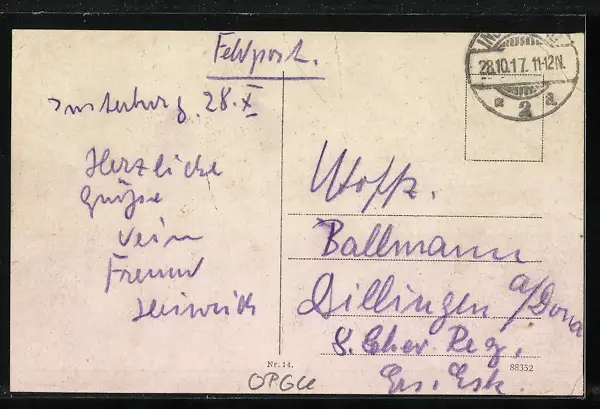 Feldpost.
Insterburg, 28. X
Herzliche
Grüße
Dein
Freund
Heinrich
28.10.17. 11-12 N.
a 2 a
Ballmann
Dillingen
a/Dona
8. Chev. Reg.
Ers. Esk.
Nr. 14.
88352